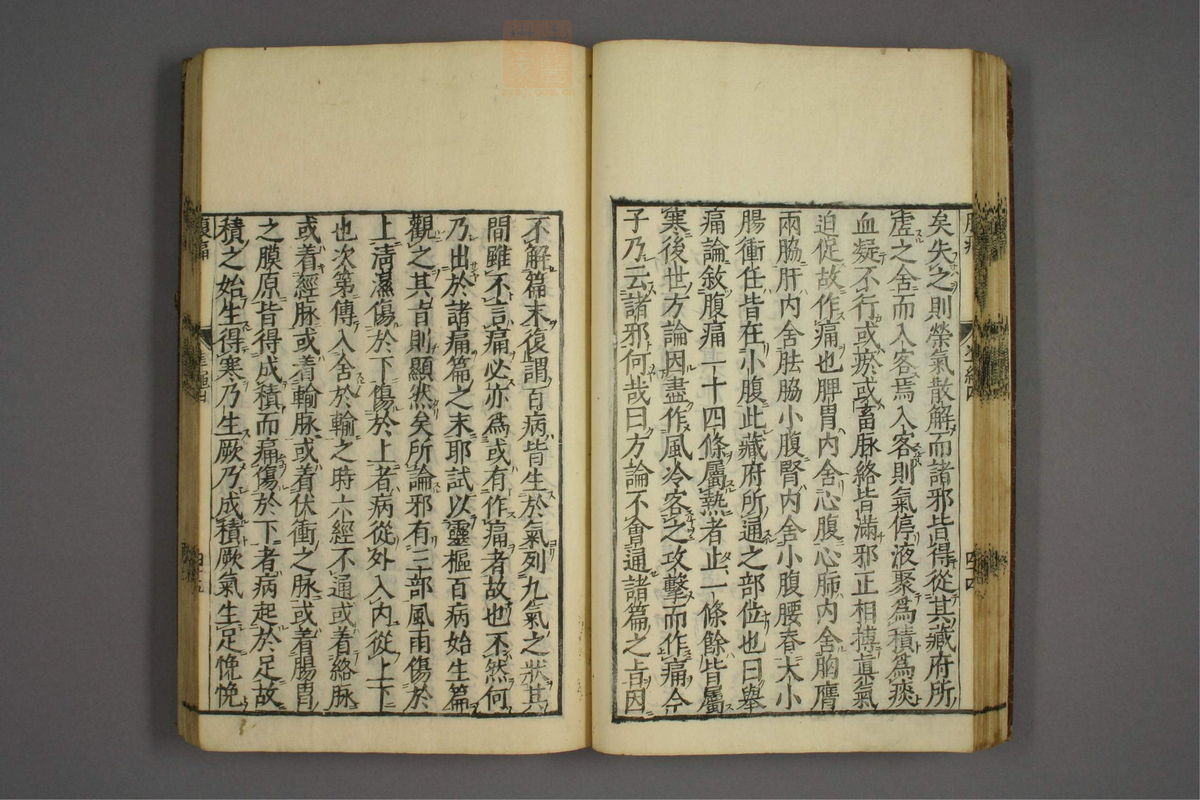 矣失之則榮氣散解而諸邪皆得從其藏府所
虛之舍而入客焉入客則氣停液聚爲積爲痰
血凝不行或瘀或畜脉絡皆滿邪正相搏眞氣
迫促故作痛也脾胃内舍心腹心肺内舍胸膺
兩脇肝内舍胠脇小腹腎内舍小腹腰脊大小
腸衝任皆在小腹此藏府所通之部位也曰舉
痛論敘腹痛一十四條屬熱者止一條餘皆屬
寒後世方論因盡作風冷客之攻擊而作痛今
子乃云諸邪何哉曰方論不會通諸篇之旨因
不解篇末復謂百病皆生於氣列九氣之狀其
間雖不言痛必亦爲或有作痛者故也不然何
乃出於諸痛篇之末耶試以靈樞百病始生篇
觀之其旨則顯然矣所論邪有三部風雨傷於
上淸濕傷於下傷於上者病從外入内從上下
也次第傳入舍於輸之時六經不通或着絡脉
或着經脉或着輸脉或着伏衝之脉或着腸胃
之膜原皆得成積而痛傷於下者病起於足故
積之始生得寒乃生厥乃成積厥氣生足悗悗